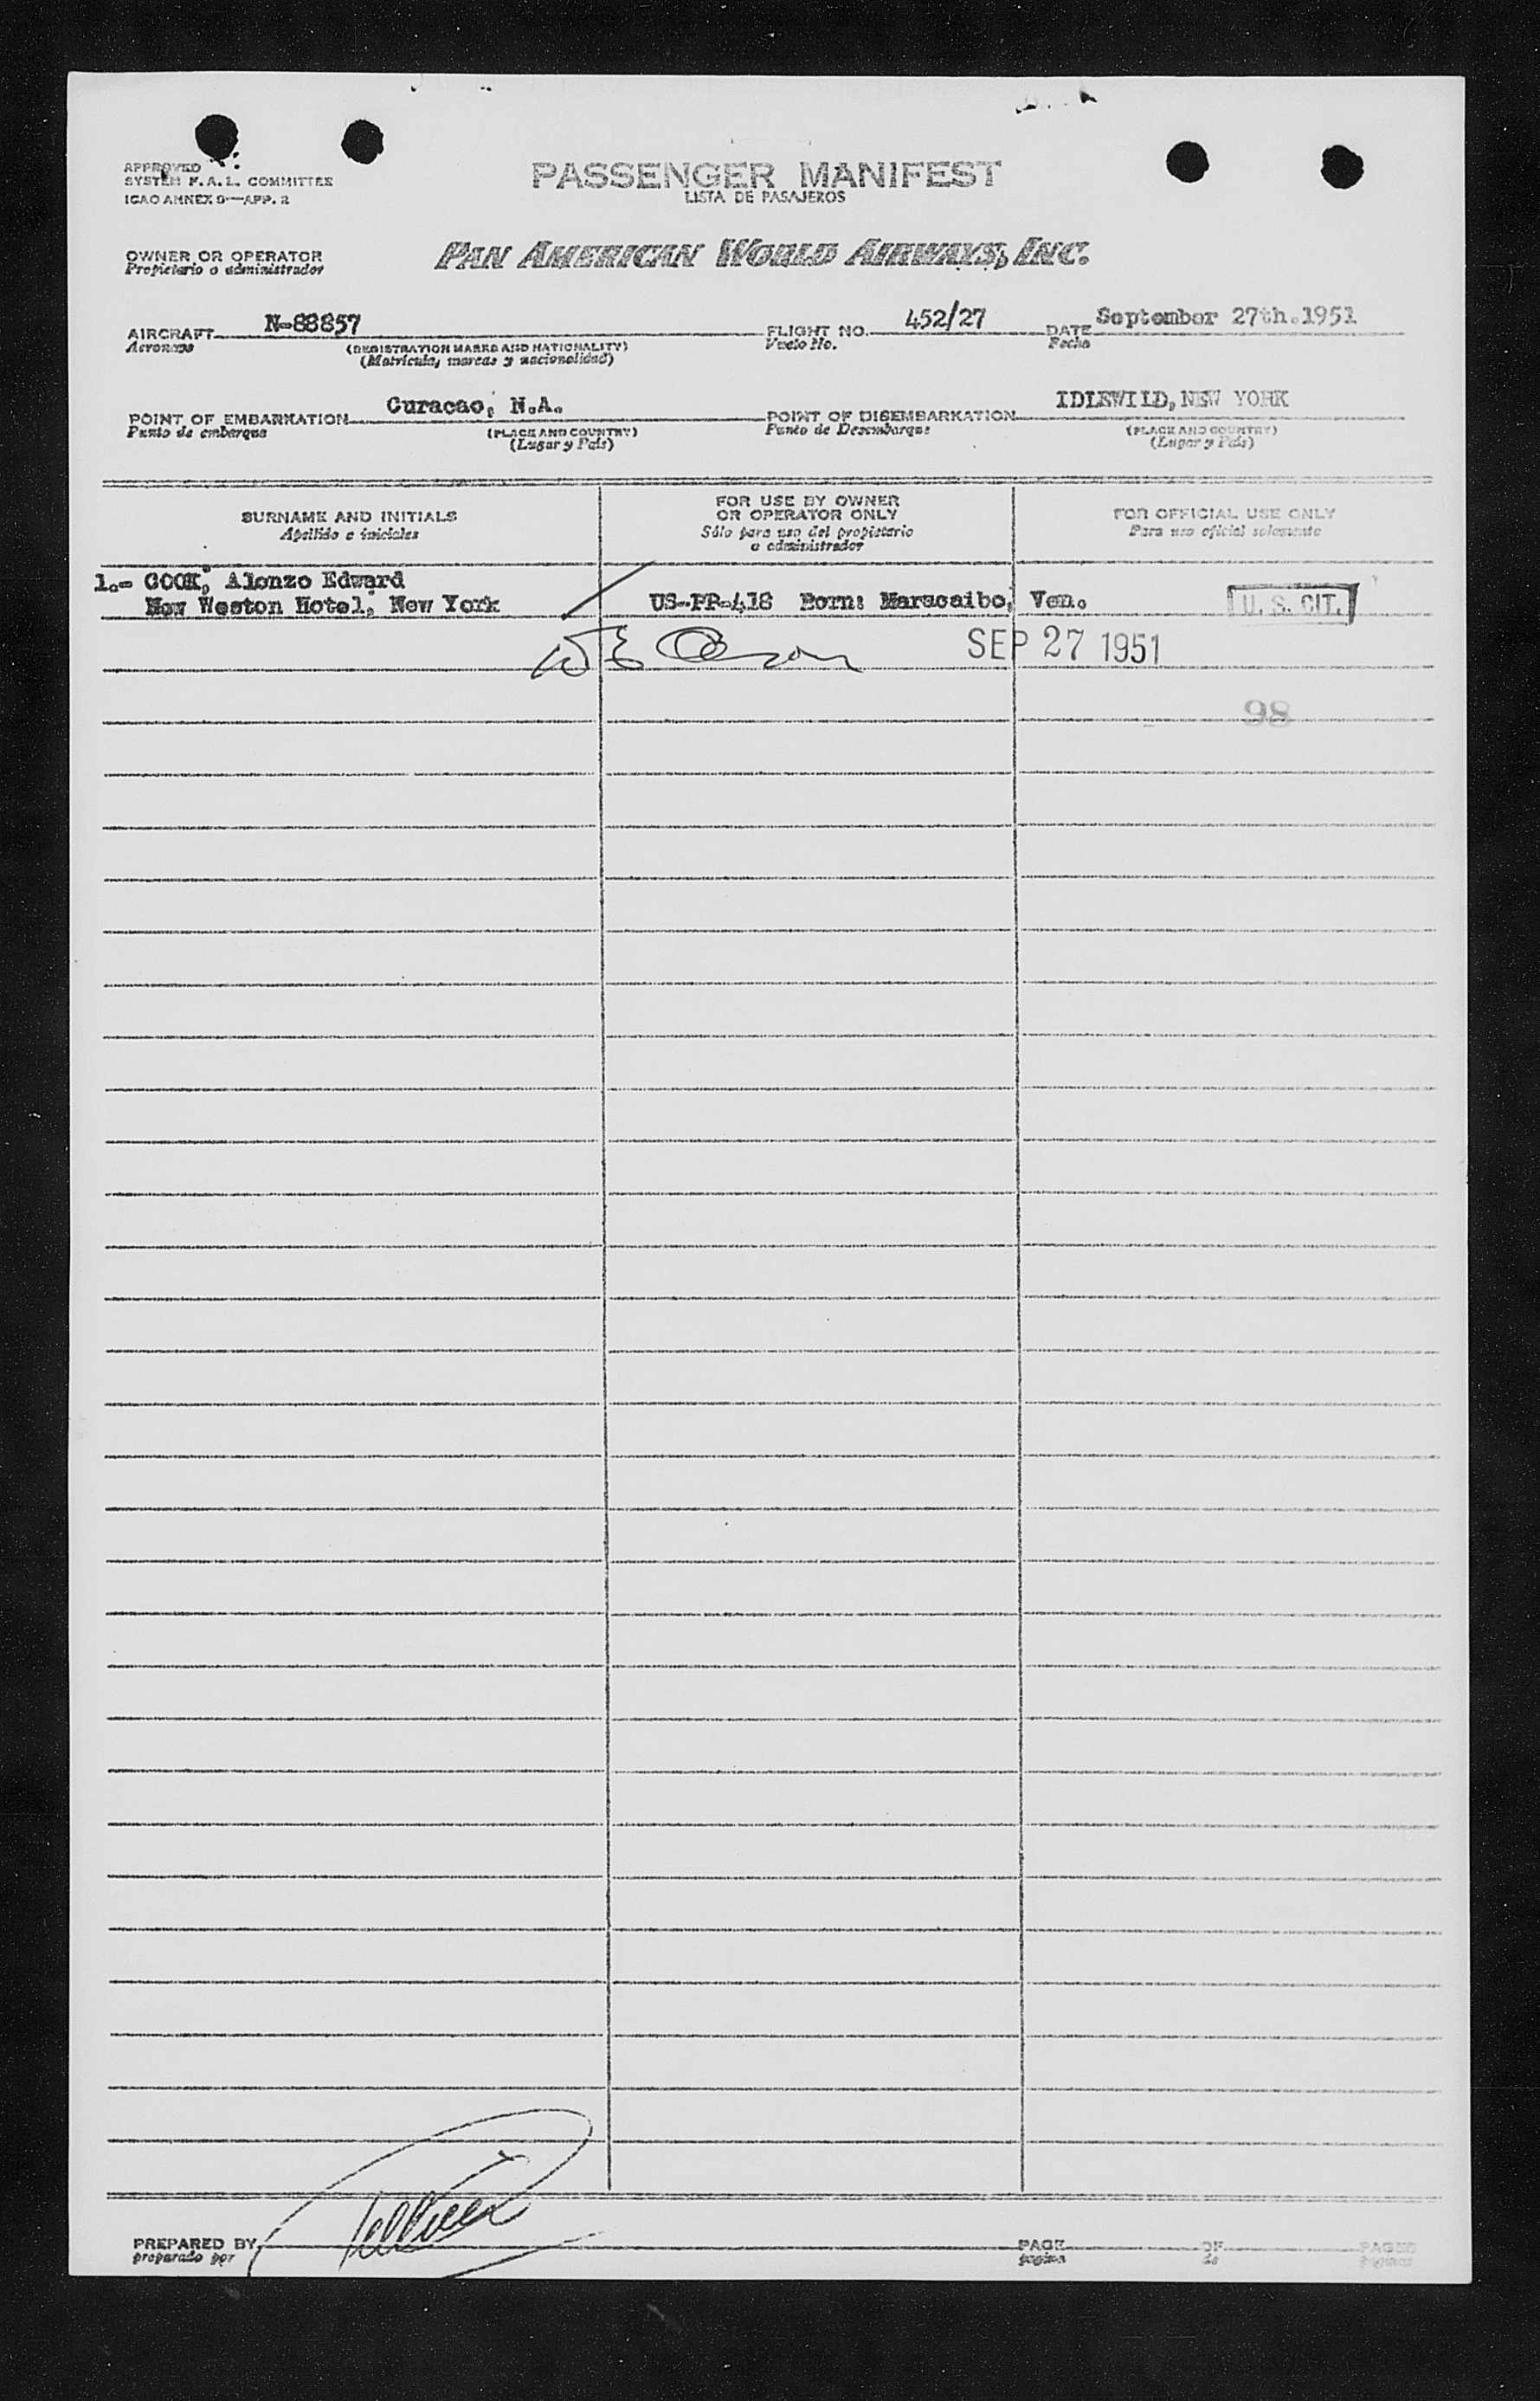 APPROVED
SYSTEM F.A.L. COMMITTEE
ICAO ANNEX 9—APP. 2
PASSENGER MANIFEST
LISTA DE PASAJEROS
OWNER OR OPERATOR
Propietario o administrador
PAN AMERICAN WORLD AIRWAYS, INC.
AIRCRAFT N-88857 FLIGHT NO. 452/27 DATE September 27th.1951
Aeronave (REGISTRATION MARKS AND NATIONALITY) Vuelo No. Fecha
(Matrícula, marcas y nacionalidad)
POINT OF EMBARKATION Curacao, N.A. POINT OF DISEMBARKATION IDLEWILD, NEW YORK
Punto de embarque (PLACE AND COUNTRY) Punto de Desembarque (PLACE AND COUNTRY)
(Lugar y País) (Lugar y País)
SURNAME AND INITIALS
Apellido e iniciales
FOR USE BY OWNER
OR OPERATOR ONLY
Sólo para uso del propietario
o administrador
FOR OFFICIAL USE ONLY
Para uso oficial solamente
1.- COOK, Alonzo Edward
New Weston Hotel, New York US-PP-418 Born: Maracaibo, Ven. U. S. CIT.
SEP 27 1951
98
PREPARED BY PAGE OF PAGES
preparado por página de páginas